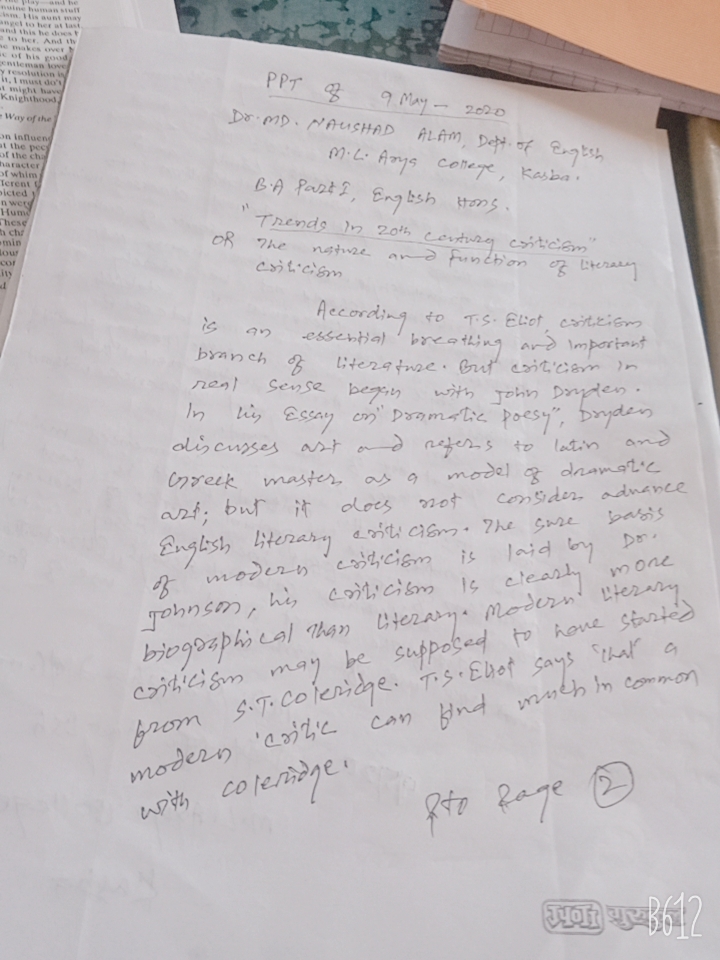 PPT of 9 May - 2020
Dr. MD. NAUSHAD ALAM, Dept. of English
M.L. Arya College, Kasba.
B.A Part I, English Hons.
"Trends in 20th century criticism"
OR The nature and function of literary
criticism
According to T.S. Eliot, criticism
is an essential breathing and important
branch of literature. But criticism in
real sense began with John Dryden.
In his Essay on "Dramatic Poesy", Dryden
discusses art and refers to latin and
Greek master as a model of dramatic
art; but it does not consider advance
English literary criticism. The sure basis
of modern criticism is laid by Dr.
Johnson, his criticism is clearly more
biographical than literary. Modern literary
criticism may be supposed to have started
from S.T. Coleridge. T.S. Eliot says "that" a
modern critic can find much in common
with coleridge.
Pto Page 2
B612